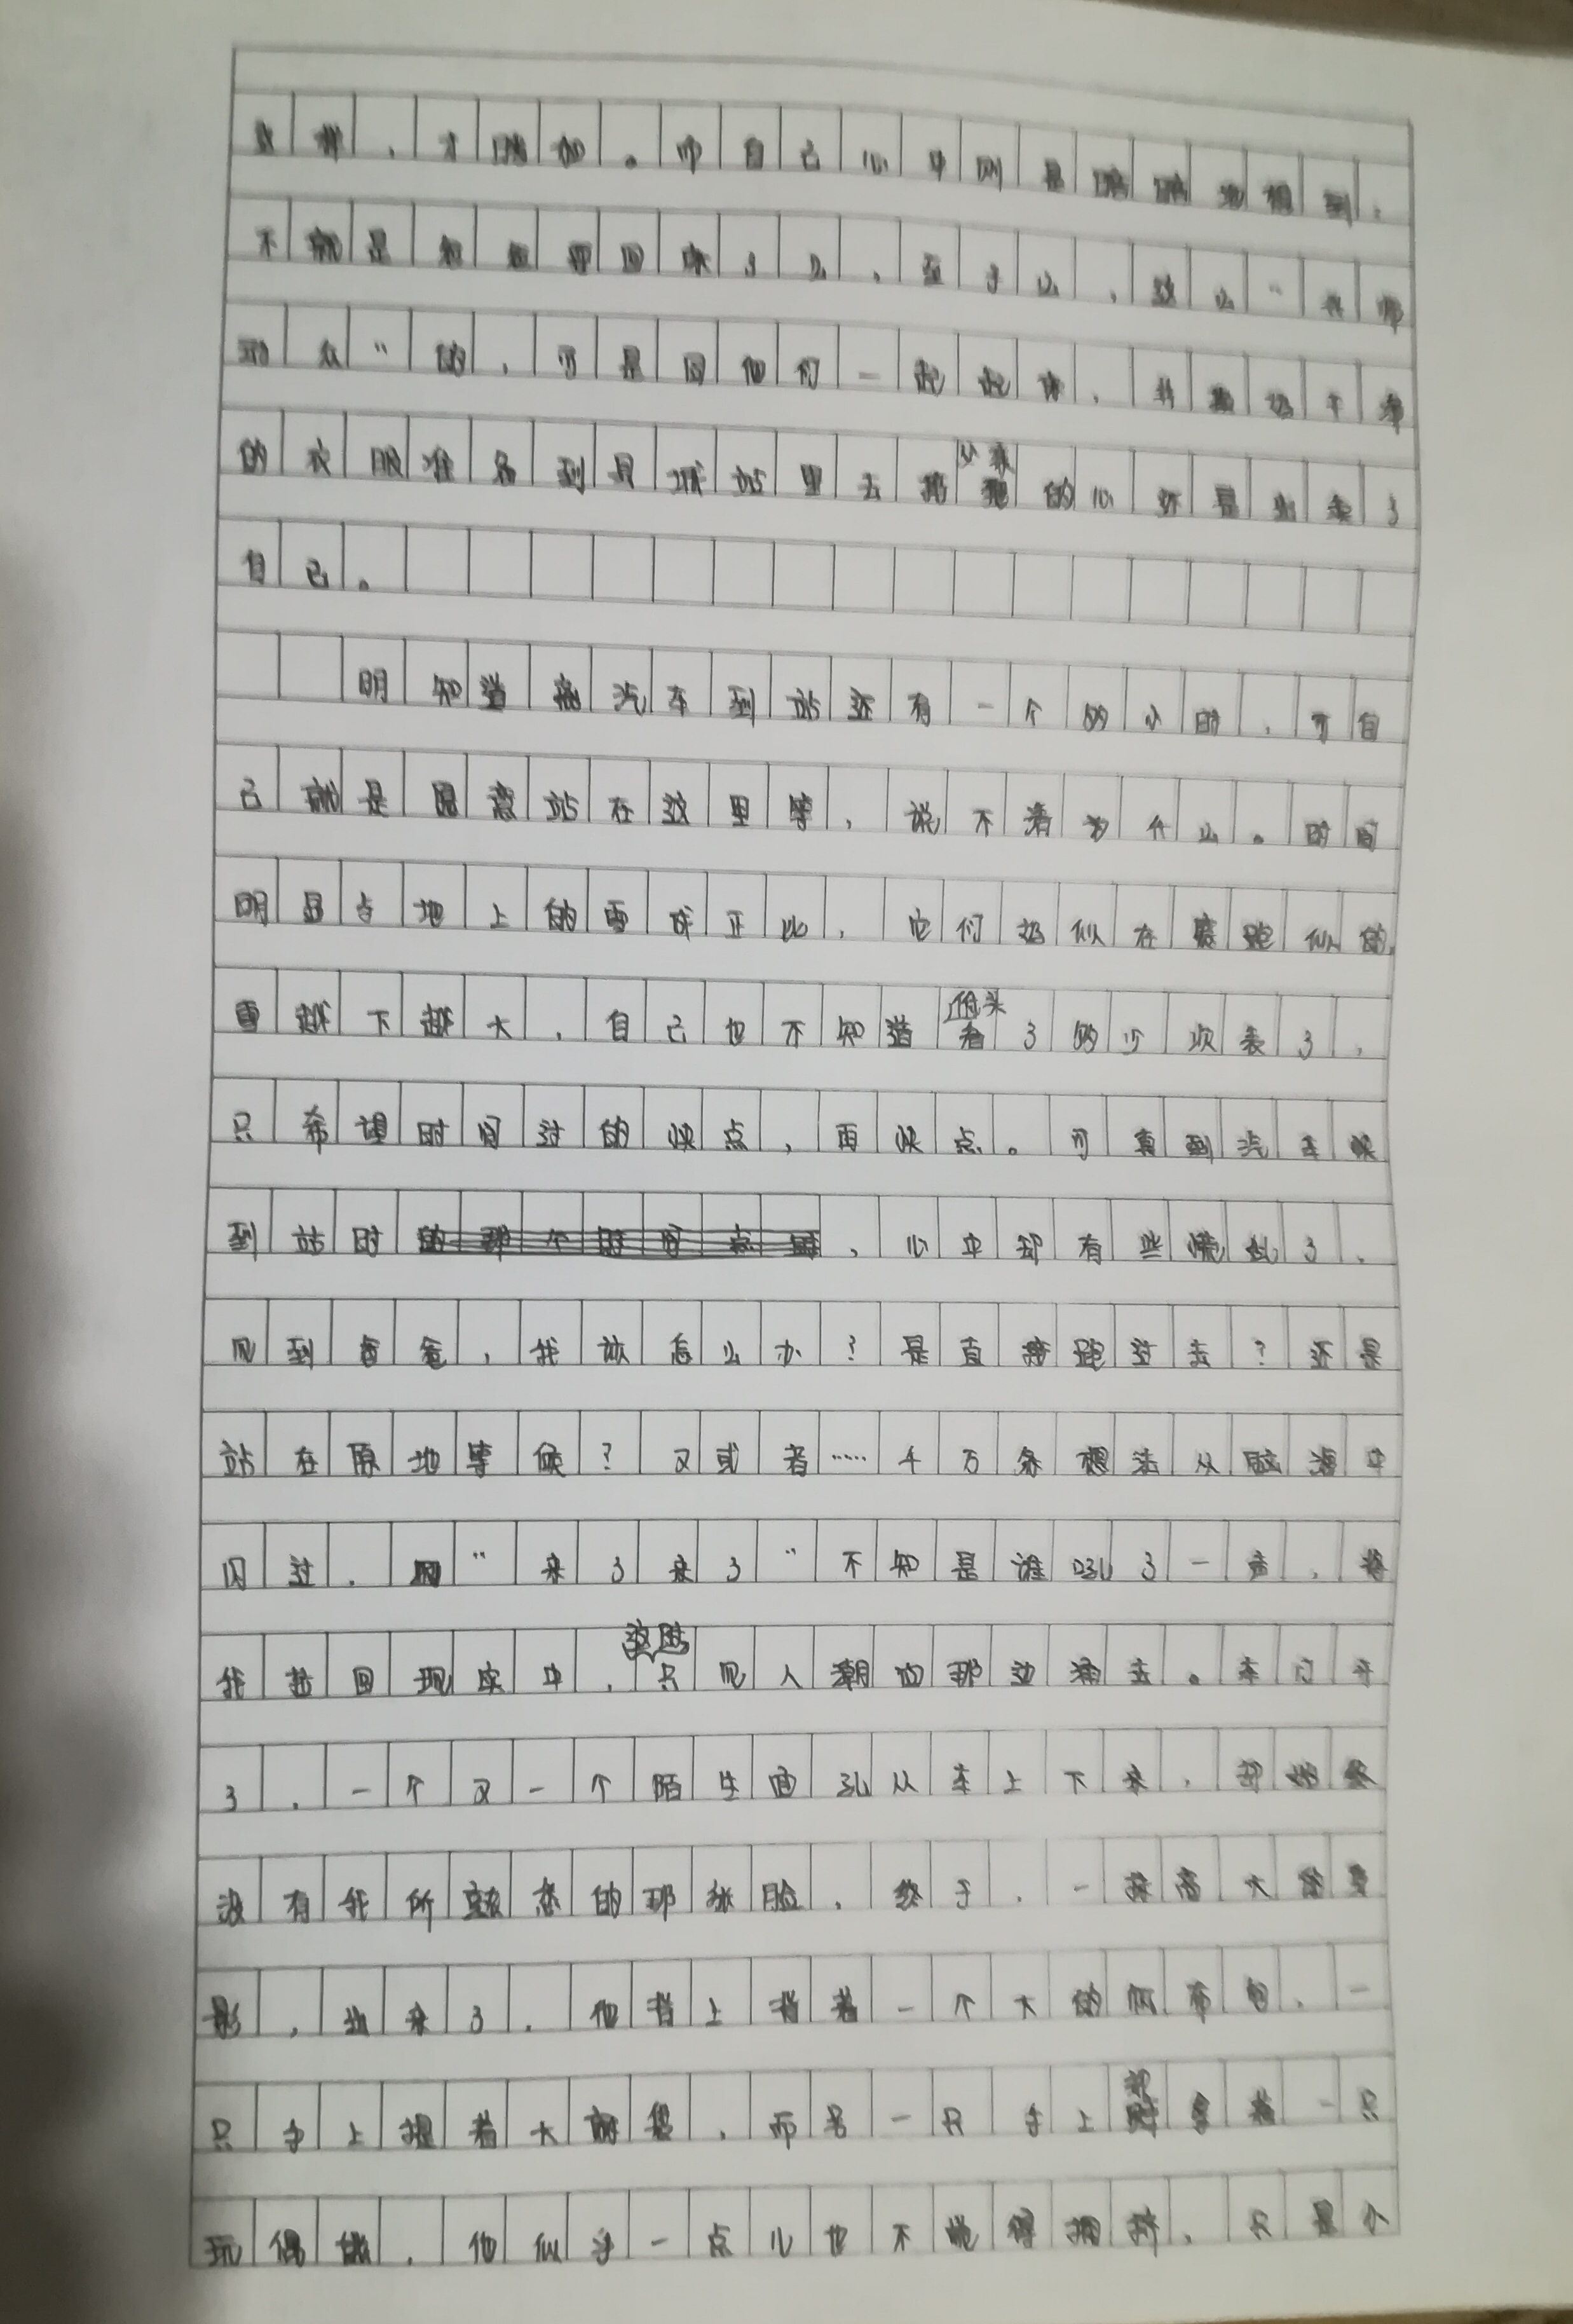 ，才。而自己心中则是暗暗地想到，
不就是爸爸要回来了么，至于么，这么“兴师
动众”的，可是同他们一起起床，并换好干净
的衣服准备到县城站里去那父亲的心还是出卖了
自己。
明知道离汽车到站还有一个多小时，可自
己就是愿意站在这里等，说不清为什么。时间
明显与地上的雪成正比，它们好似在赛跑似的，
雪越下越大，自己也不知道低头看了多少次表了，
只希望时间过的快点，再快点。可真到汽车快
到站时，心中却有些慌乱了，
见到爸爸，我该怎么办？是直接跑过去？还是
站在原地等候？又或者……千万条想法从脑海中
闪过，“来了来了”不知是谁吼了一声，将
我拉回现实中，这时只见人潮向那边涌去。车门开
了，一个又一个陌生面孔从车上下来，却始终
没有我所熟悉的那张脸，终于，一抹高大身
影，出来了，他背上背着一个大的帆布包，一
只手上提着大袋，而另一只手上却拿着一只
玩偶熊，他似乎一点儿也不觉得拥挤，只是小